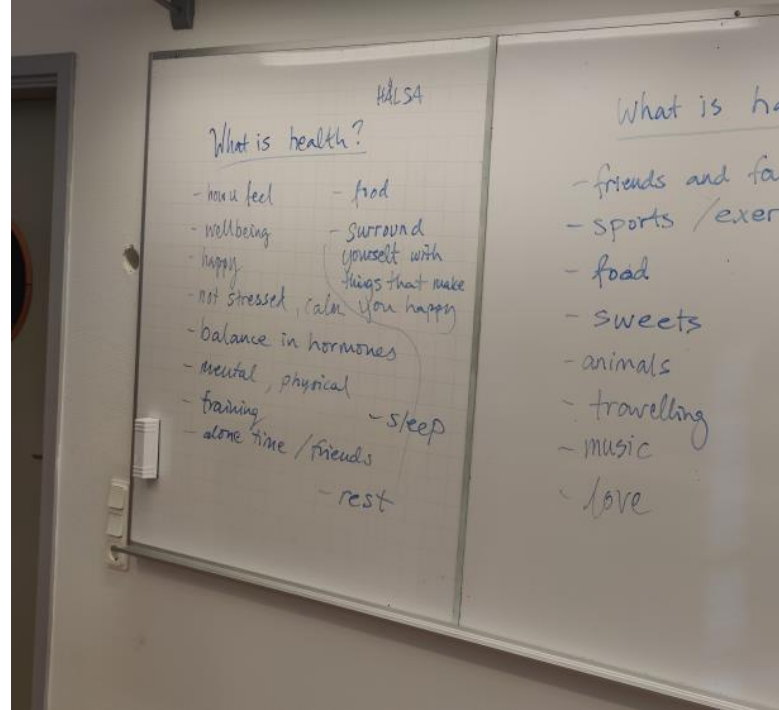 HÄLSA
What is health?
- how u feel
- wellbeing
- happy
- not stressed, calm
- balance in hormones
- mental, physical
- training
- alone time / friends
- food
- surround
yourself with
things that make
you happy
- sleep
- rest
What is ha
- friends and fa
- sports / exer
- food
- sweets
- animals
- trawelling
- music
- love